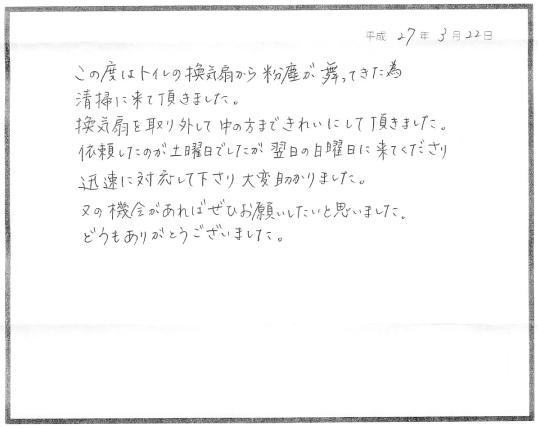 平成 27 年 3 月 22 日
この度はトイレの換気扇から粉塵が舞ってきた為
清掃に来て頂きました。
換気扇を取り外して中の方まできれいにして頂きました。
依頼したのが土曜日でしたが翌日の日曜日に来てくださり
迅速に対応して下さり大変助かりました。
又の機会があればぜひお願いしたいと思いました。
どうもありがとうございました。